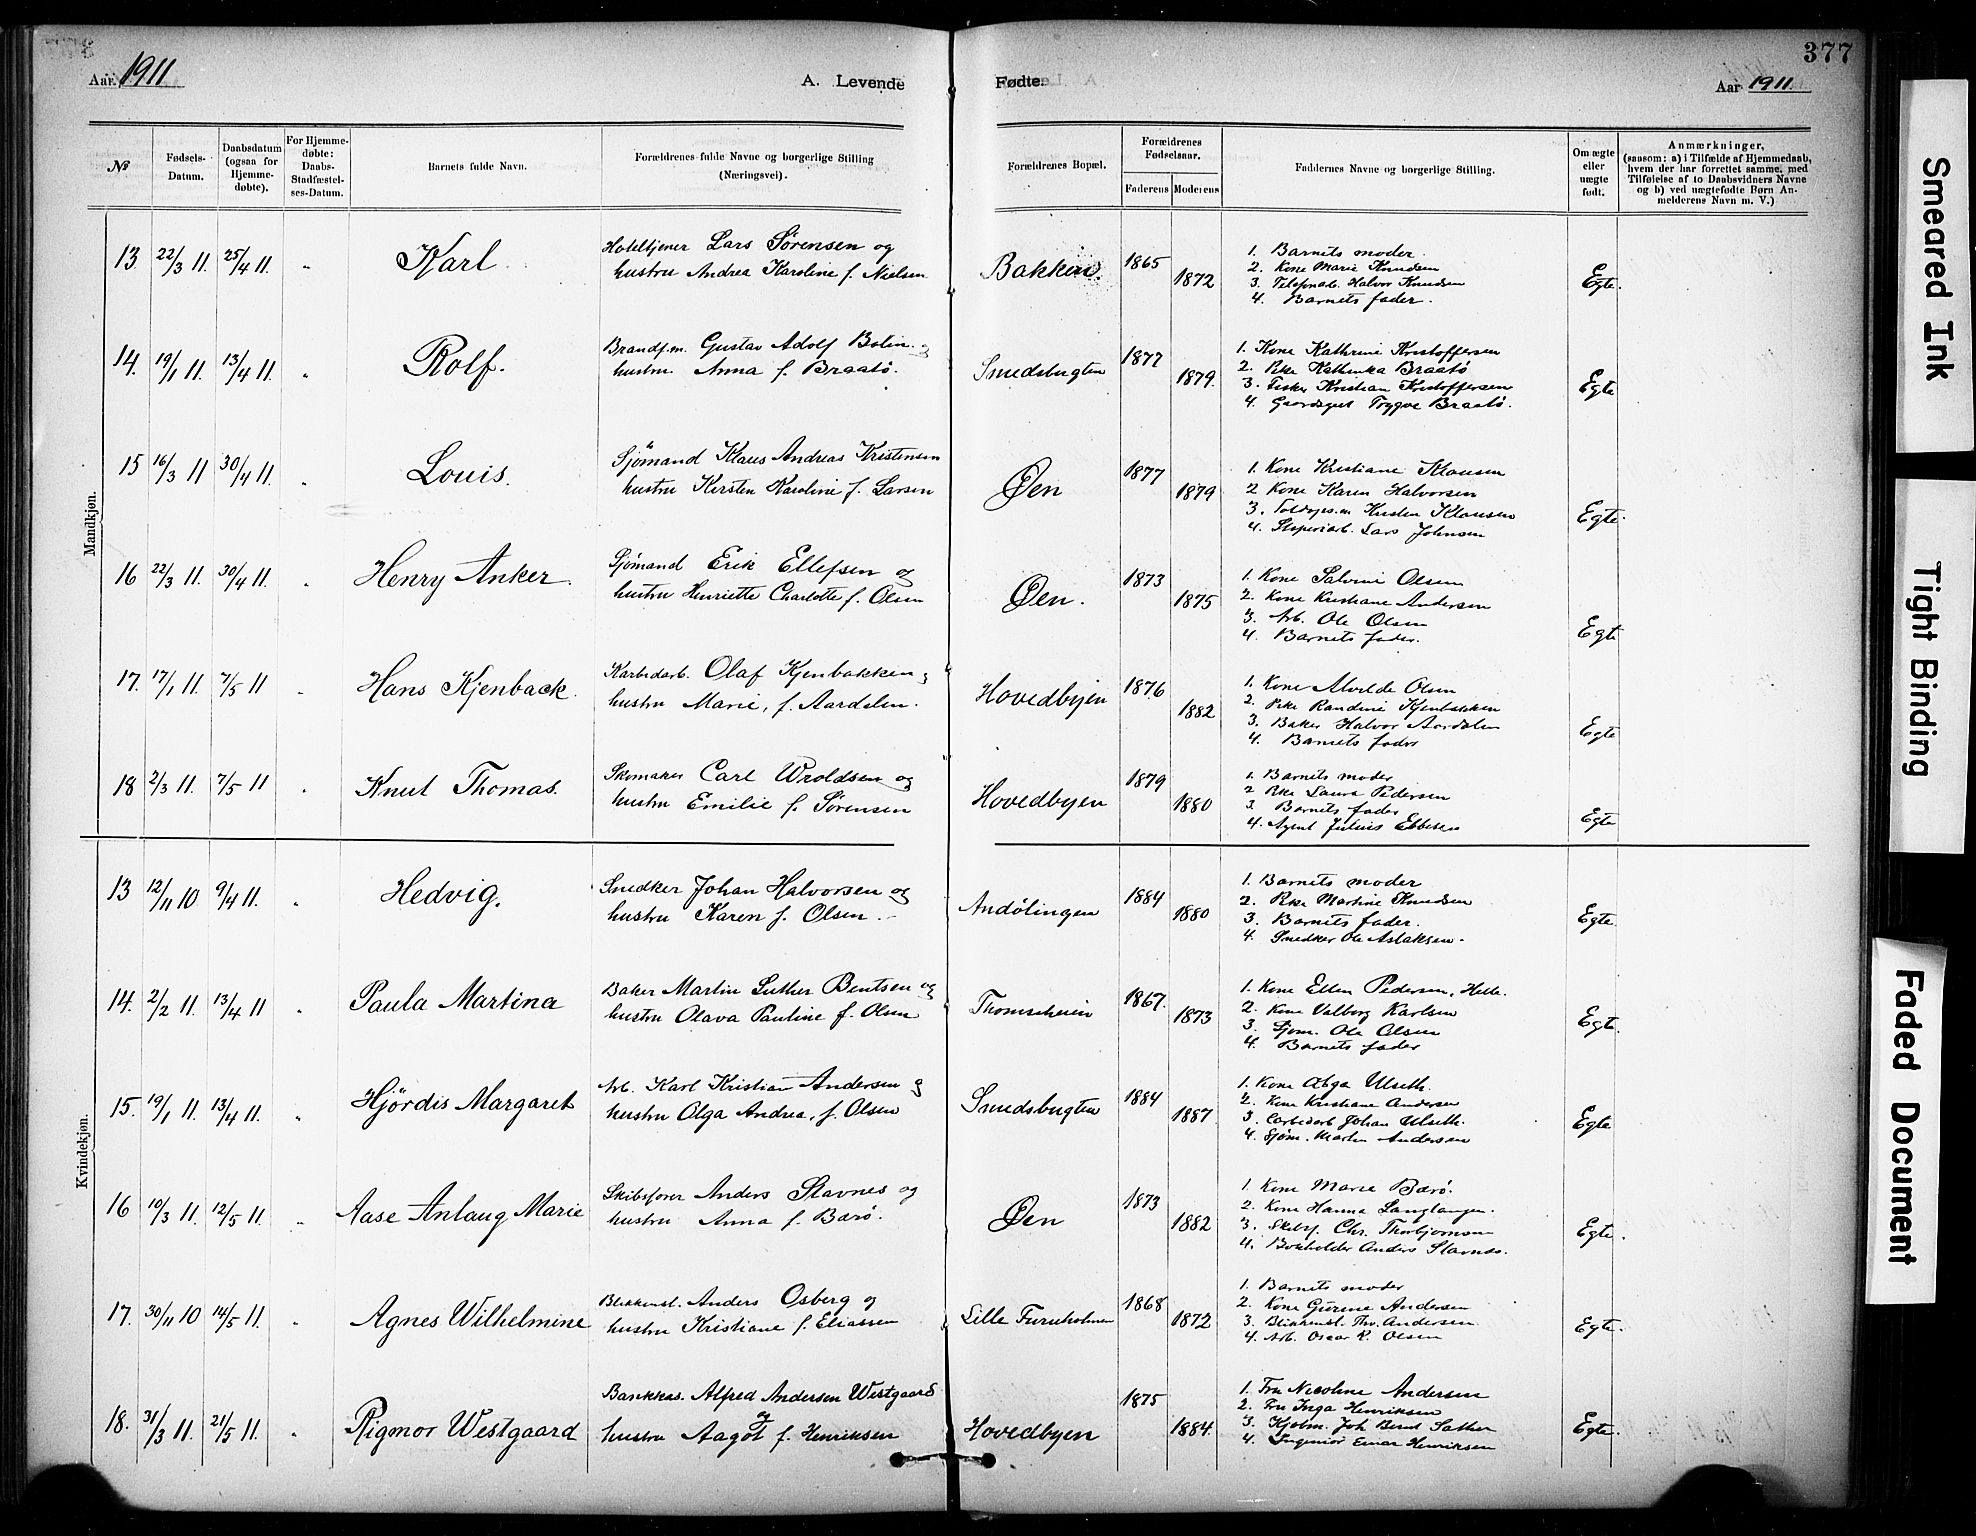 377
Aar. 1911
A. Levende
Fødte.
Aar 1911.
№
Fødsels-
Datum.
Daabsdatum
(ogsaa for
Hjemme-
døbte).
For Hjemme-
døbte:
Daabs-
Stadfæstel-
ses-Datum.
Barnets fulde Navn.
Forældrenes fulde Navne og borgerlige Stilling
(Næringsvei).
Forældrenes Bopæl.
Forældrenes
Fødselsaar.
Faderens
Moderens
Faddernes Navne og borgerlige Stilling.
Om ægte
eller
uægte
født.
Anmærkninger,
(saasom: a) i Tilfælde af Hjemmedaab,
hvem der har forrettet samme, med
Tilføielse af to Daabsvidners Navne
og b) ved uægtefødte Børn An-
melderens Navn m. V.)
Mandkjøn.
13 22/3 11. 25/4 11. " Karl.
Hoteltjener Lars Sørensen og
hustru Andrea Karoline f. Nielsen
Bakken. 1865 1872
1. Barnets moder.
2. Kone Marie Knudsen
3. Telefonarb. Halvor Knudsen
4. Barnets fader.
Egte.
14. 19/1 11. 13/4 11. " Rolf.
Brandf.m. Gustav Adolf Bolin og
hustru Anna f. Braatø.
Smedsbugten 1877 1879.
1. Kone Kathrine Kristoffersen
2. Pike Kathinka Braatø
3. Fisker Kristian Kristoffersen
4. Trygve Braatø.
Egte
15 16/3 11 30/4 11. " Louis.
Sjømand Klaus Andreas Kristensen
hustru Kirsten Karoline f. Larsen
Øen 1877 1879
1. Kone Kristiane Klausen
2 Kone Karen Halvorsen
3. Klausen
4. Lars Johnsen
Egte.
16 22/3 11. 30/4 11. " Henry Anker.
Sjømand Erik Ellefsen og
hustru Henriette Charlotte f. Olsen
Øen. 1873 1875
1. Kone Salvine Olsen
2. Kone Kristiane Andersen
3. Arb. Ole Olsen
4. Barnets fader.
Egte
17. 17/1 11. 7/5 11 " Hans Kjenback.
Karbidarb. Olaf Kjenbakken og
hustru Marie, f. Aardalen.
Hovedbyen 1876 1882
1. Kone Alvilde Olsen
2. Pike Randine Kjenbakken
3. Baker Halvor Aardalen
4. Barnets fader
Egte
18 2/3 11. 7/5 11 " Knut Thomas.
Skomaker Carl Wroldsen og
hustru Emilie f. Sørensen
Hovedbyen 1879 1880
1. Barnets moder
2 Pike Laura Pedersen
3. Barnets fader
4. Agent Julius Ebbesen
Egte
Kvindekjøn.
13 12/11 10 9/4 11. " Hedvig.
Snedker Johan Halvorsen og
hustru Karen f. Olsen.
Andølingen 1884 1880
1. Barnets moder
2. Pike Martine Knudsen
3. Barnets fader.
4. Snedker Ole Aslaksen.
Egte.
14. 2/2 11. 13/4 11 " Paula Martina
Baker Martin Luther Bentsen og
hustru Olava Pauline f. Olsen
Thomesheien 1867. 1873
1. Kone Ellen Pedersen, Helle.
2. Kone Valborg Karlsen
3. Sjøm. Ole Olsen
4. Barnets fader
Egte.
15. 19/1 11. 13/4 11. " Hjördis Margaret
Arb. Karl Kristian Andersen og
hustru Olga Andrea, f. Olsen
Smedsbugten 1884 1887.
1. Kone Olga Ulseth.
2. Kone Kristiane Andersen
3. Carbidarb Johan Ulseth.
4. Sjøm. Martin Andersen
Egte
16 10/3 11. 12/5 11. " Aase Anlaug Marie
Skibsfører Anders Stavnes og
hustru Anna f. Barø.
Øen 1873 1882
1. Kone Marie Barø.
2. Kone Hanna Langtangen.
3. Skibsf. Chr. Thorbjørnsen
4. Bokholder Anders Stavnes.
Egte.
17. 30/11 10 14/5 11. " Agnes Wilhelmine
Blikkensl. Anders Osberg og
hustru Kristiane f. Eliassen
Lille Furuholmen 1868 1872
1. Barnets moder
2. Kone Gurine Andersen
3. Blikkensl. Thv. Andersen.
4. Arb. Oscar R. Olsen
Egte.
18. 31/3 11. 21/5 11. " Rigmor Westgaard
Bankkas. Alfred Andersen Westgaard
og
hustru Aagot f. Henriksen
Hovedbyen 1875 1884.
1. Fru Nicoline Andersen
2. Fru Inga Henriksen
3. Kjøbm. Joh Bernt Sather
4. Ingeniør Einar Henriksen
Egte.
Smeared Ink
Tight Binding
Faded Document